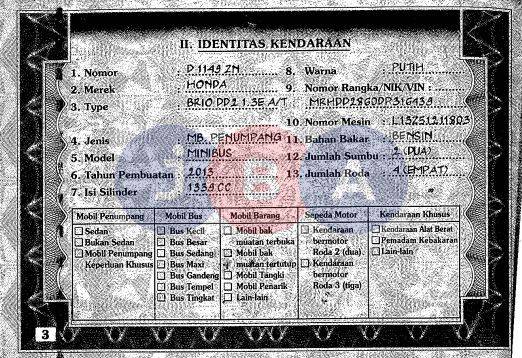 II. IDENTITAS KENDARAAN
1. Nomor : P 1149 ZN
2. Merek : HONDA
3. Type : BRIO DD2 1.3E A/T
4. Jenis : MB. PENUMPANG
5. Model : MINIBUS
6. Tahun Pembuatan : 2013
7. Isi Silinder : 1339 CC
8. Warna : PUTIH
9. Nomor Rangka/NIK/VIN :
MRHDD1860DP316439
10. Nomor Mesin :
11. Bahan Bakar : BENSIN
12. Jumlah Sumbu : 2 (DUA)
13. Jumlah Roda : 4 (EMPAT)
SBA
Mobil Penumpang
Sedan
Bukan Sedan
Mobil Penumpang
Keperluan Khusus
Mobil Bus
Bus Kecil
Bus Besar
Bus Sedang
Bus Maxi
Bus Gandeng
Bus Tempel
Bus Tingkat
Mobil Barang
Mobil bak
muatan terbuka
Mobil bak
muatan tertutup
Mobil Tangki
Mobil Penarik
Lain-lain
Sepeda Motor
Kendaraan
bermotor
Roda 2 (dua)
Kendaraan
bermotor
Roda 3 (tiga)
Kendaraan Khusus
Kendaraan Alat Berat
Pemadam Kebakaran
Lain-lain
3